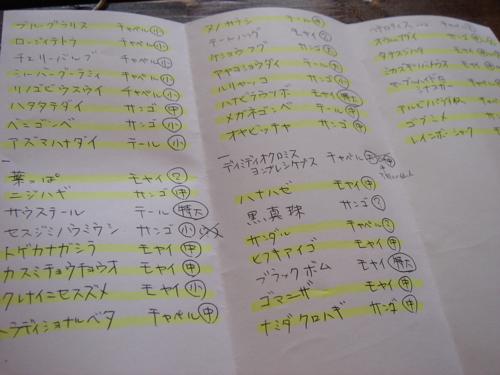 ブルーグラミス チャペル 小
ロージィテトラ チャペル 小
チェリーバルブ チャペル 小
シルバーグーラミィ チャペル 小
リノゴビウスウイ チャペル 小
ハタタテダイ サンゴ 中
ベニゴンベ サンゴ 小
アズマハナダイ テール 小
葉っぱ モヤイ 2
ニジハギ サンゴ 中
サウステール テール 特大
セスジミノウミウシ サンゴ 小
トゲカナガシラ モヤイ 中
カスミチョウチョウオ モヤイ 中
クレナイニセスズメ モヤイ 小
トラディショナルベタ チャペル 中
テール 中
テールリング モヤイ 2
ケショウフグ サンゴ 大
アヤコショウダイ テール 大
ルリヤッコ サンゴ 小
ハナビラウツボ モヤイ 特大
メガネゴンベ テール 中
オヤビッチャ サンゴ 中
ディミディオクロミス
コンプレシケプス チャペル
ハナハゼ モヤイ 中
黒真珠 サンゴ 2
サンダル チャペル 2
ヒフキアイゴ モヤイ 中
ブラックボム モヤイ 特大
ゴマニザ モヤイ 中
ナミダクロハギ サンゴ 中
チャペル
サンゴ
タテスジハタ モヤイ
ミカズキツバメウオ モヤイ
ゴブニメ サンゴ
レインボーシャーク